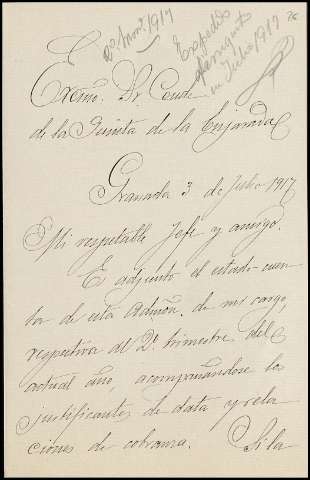 76
2º Trimre. 1917
Expedido
en Julio 1917
Excmo. Sr. Conde
de la Quinta de la Enjarada
Granada 3 de Julio 1917
Mi respetable Jefe y amigo.
E adjunto el estado-cuen
ta de esta Admón. de mi cargo,
respectiva al 2º trimestre del
actual año, acompañandose los
justificantes de data y rela
ciones de cobranza. Si la